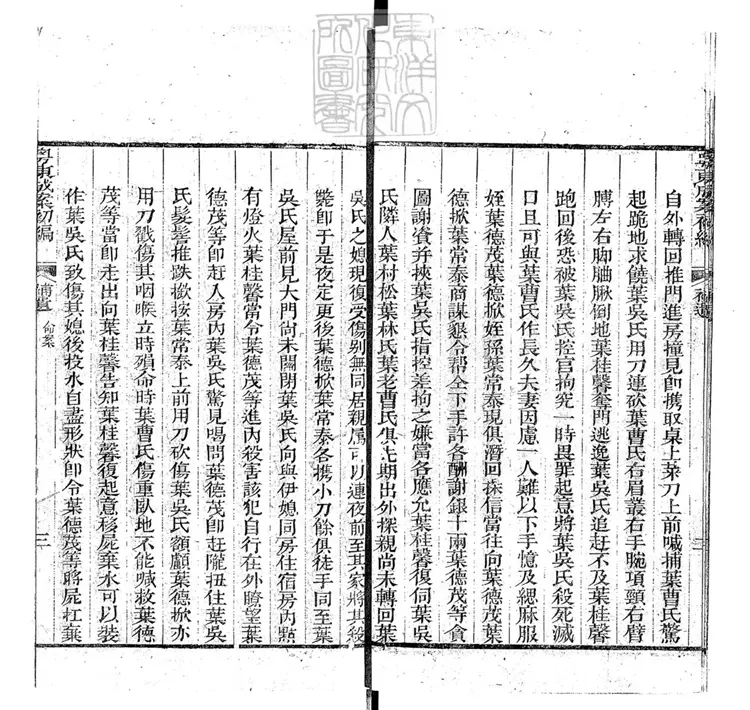 自外轉回推門進房撞見卽携取桌上菜刀上前喊捕葉曹氏驚
起跪地求饒葉吳氏用刀連砍葉曹氏右眉叢右手腕項頸右臂
膊左右脚腷腘倒地葉桂馨奪門逃逸葉吳氏追赶不及葉桂馨
跑回後恐被葉吳氏控官拘究一時畏罪起意將葉吳氏殺死滅
口且可與葉曹氏作長久夫妻因慮一人難以下手憶及緦麻服
姪葉德茂葉德掀姪孫葉常泰現俱潛回探信當往向葉德茂葉
德掀葉常泰商謀懇令帮仝下手許各酬謝銀十兩葉德茂等貪
圖謝資并挾葉吳氏指控差拘之嫌當各應允葉桂馨復伺葉吳
氏隣人葉村松葉林氏葉老曹氏俱先期出外探親尚未轉回葉
吳氏之媳現復受傷别無同居親属可以連夜前至其家將其殺
斃卽于是夜定更後葉德掀葉常泰各携小刀餘俱徒手同至葉
吳氏屋前見大門尚未關閉葉吳氏向與伊媳同房住宿房内㸃
有燈火葉桂馨當令葉德茂等進内殺害該犯自行在外瞭望葉
德茂等卽赶人房内葉吳氏驚見喝問葉德茂卽赶隴扭住葉吳
氏髮髻推跌撳按葉常泰上前用刀砍傷葉吳氏額顱葉德掀亦
用刀戳傷其咽喉立時殞命時葉曹氏傷重臥地不能喊救葉德
茂等當卽走出向葉桂馨告知葉桂馨復起意移屍棄水可以裝
作葉吳氏致傷其媳後投水自盡形狀卽令葉德茂等將屍扛棄
粵東成案初編
補遺
命案
三